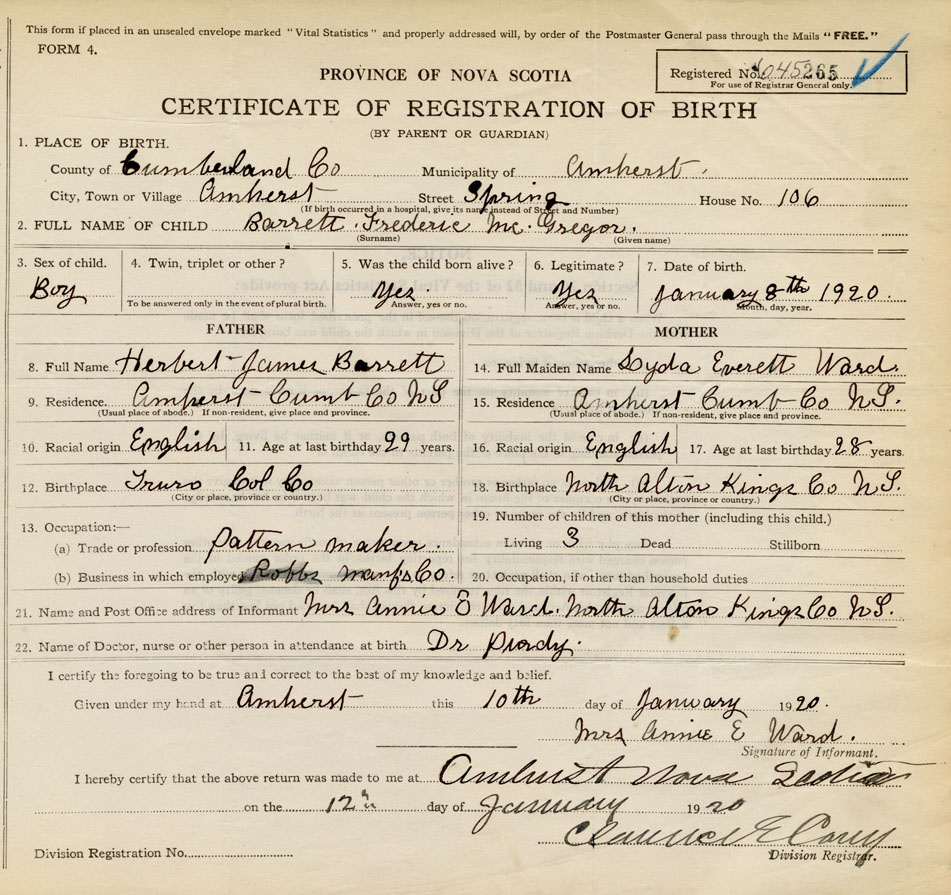 This form if placed in an unsealed envelope marked "Vital Statistics" and properly addressed will, by order of the Postmaster General pass through the Mails "FREE."
FORM 4.
PROVINCE OF NOVA SCOTIA
Registered No. 045265
For use of Registrar General only.
CERTIFICATE OF REGISTRATION OF BIRTH
(BY PARENT OR GUARDIAN)
1. PLACE OF BIRTH.
County of Cumberland Co Municipality of Amherst.
City, Town or Village Amherst Street Spring House No. 106
(If birth occurred in a hospital, give its name instead of Street and Number)
2. FULL NAME OF CHILD Barrett. Frederic Mc. Gregor.
(Surname) (Given name)
3. Sex of child. 4. Twin, triplet or other? 5. Was the child born alive? 6. Legitimate? 7. Date of birth.
Boy Yes Yes January 8th 1920.
To be answered only in the event of plural birth. Answer, yes or no. Answer, yes or no. Month, day, year.
FATHER MOTHER
8. Full Name Herbert James Barrett 14. Full Maiden Name Lyda Everett Ward.
9. Residence. Amherst Cumb Co N S 15. Residence Amherst Cumb Co N S.
(Usual place of abode.) If non-resident, give place and province. (Usual place of abode.) If non-resident, give place and province.
10. Racial origin English 11. Age at last birthday 29 years. 16. Racial origin English 17. Age at last birthday 28 years.
12. Birthplace Truro Col Co 18. Birthplace North Alton Kings Co N S.
(City or place, province or country.) (City or place, province or country.)
13. Occupation:— 19. Number of children of this mother (including this child.)
(a) Trade or profession Pattern maker. Living 3 Dead Stillborn
(b) Business in which employed Robbs Manfs Co. 20. Occupation, if other than household duties
21. Name and Post Office address of Informant Mrs Annie E Ward. North Alton Kings Co N S.
22. Name of Doctor, nurse or other person in attendance at birth Dr Purdy.
I certify the foregoing to be true and correct to the best of my knowledge and belief.
Given under my hand at Amherst this 10th day of January 1920.
Mrs Annie E Ward.
Signature of Informant.
I hereby certify that the above return was made to me at Amherst Nova Scotia
on the 12th day of January 1920
Clarence E Corey
Division Registration No. Division Registrar.